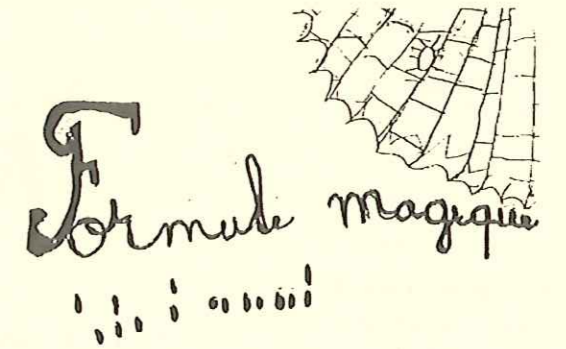 Formule magique